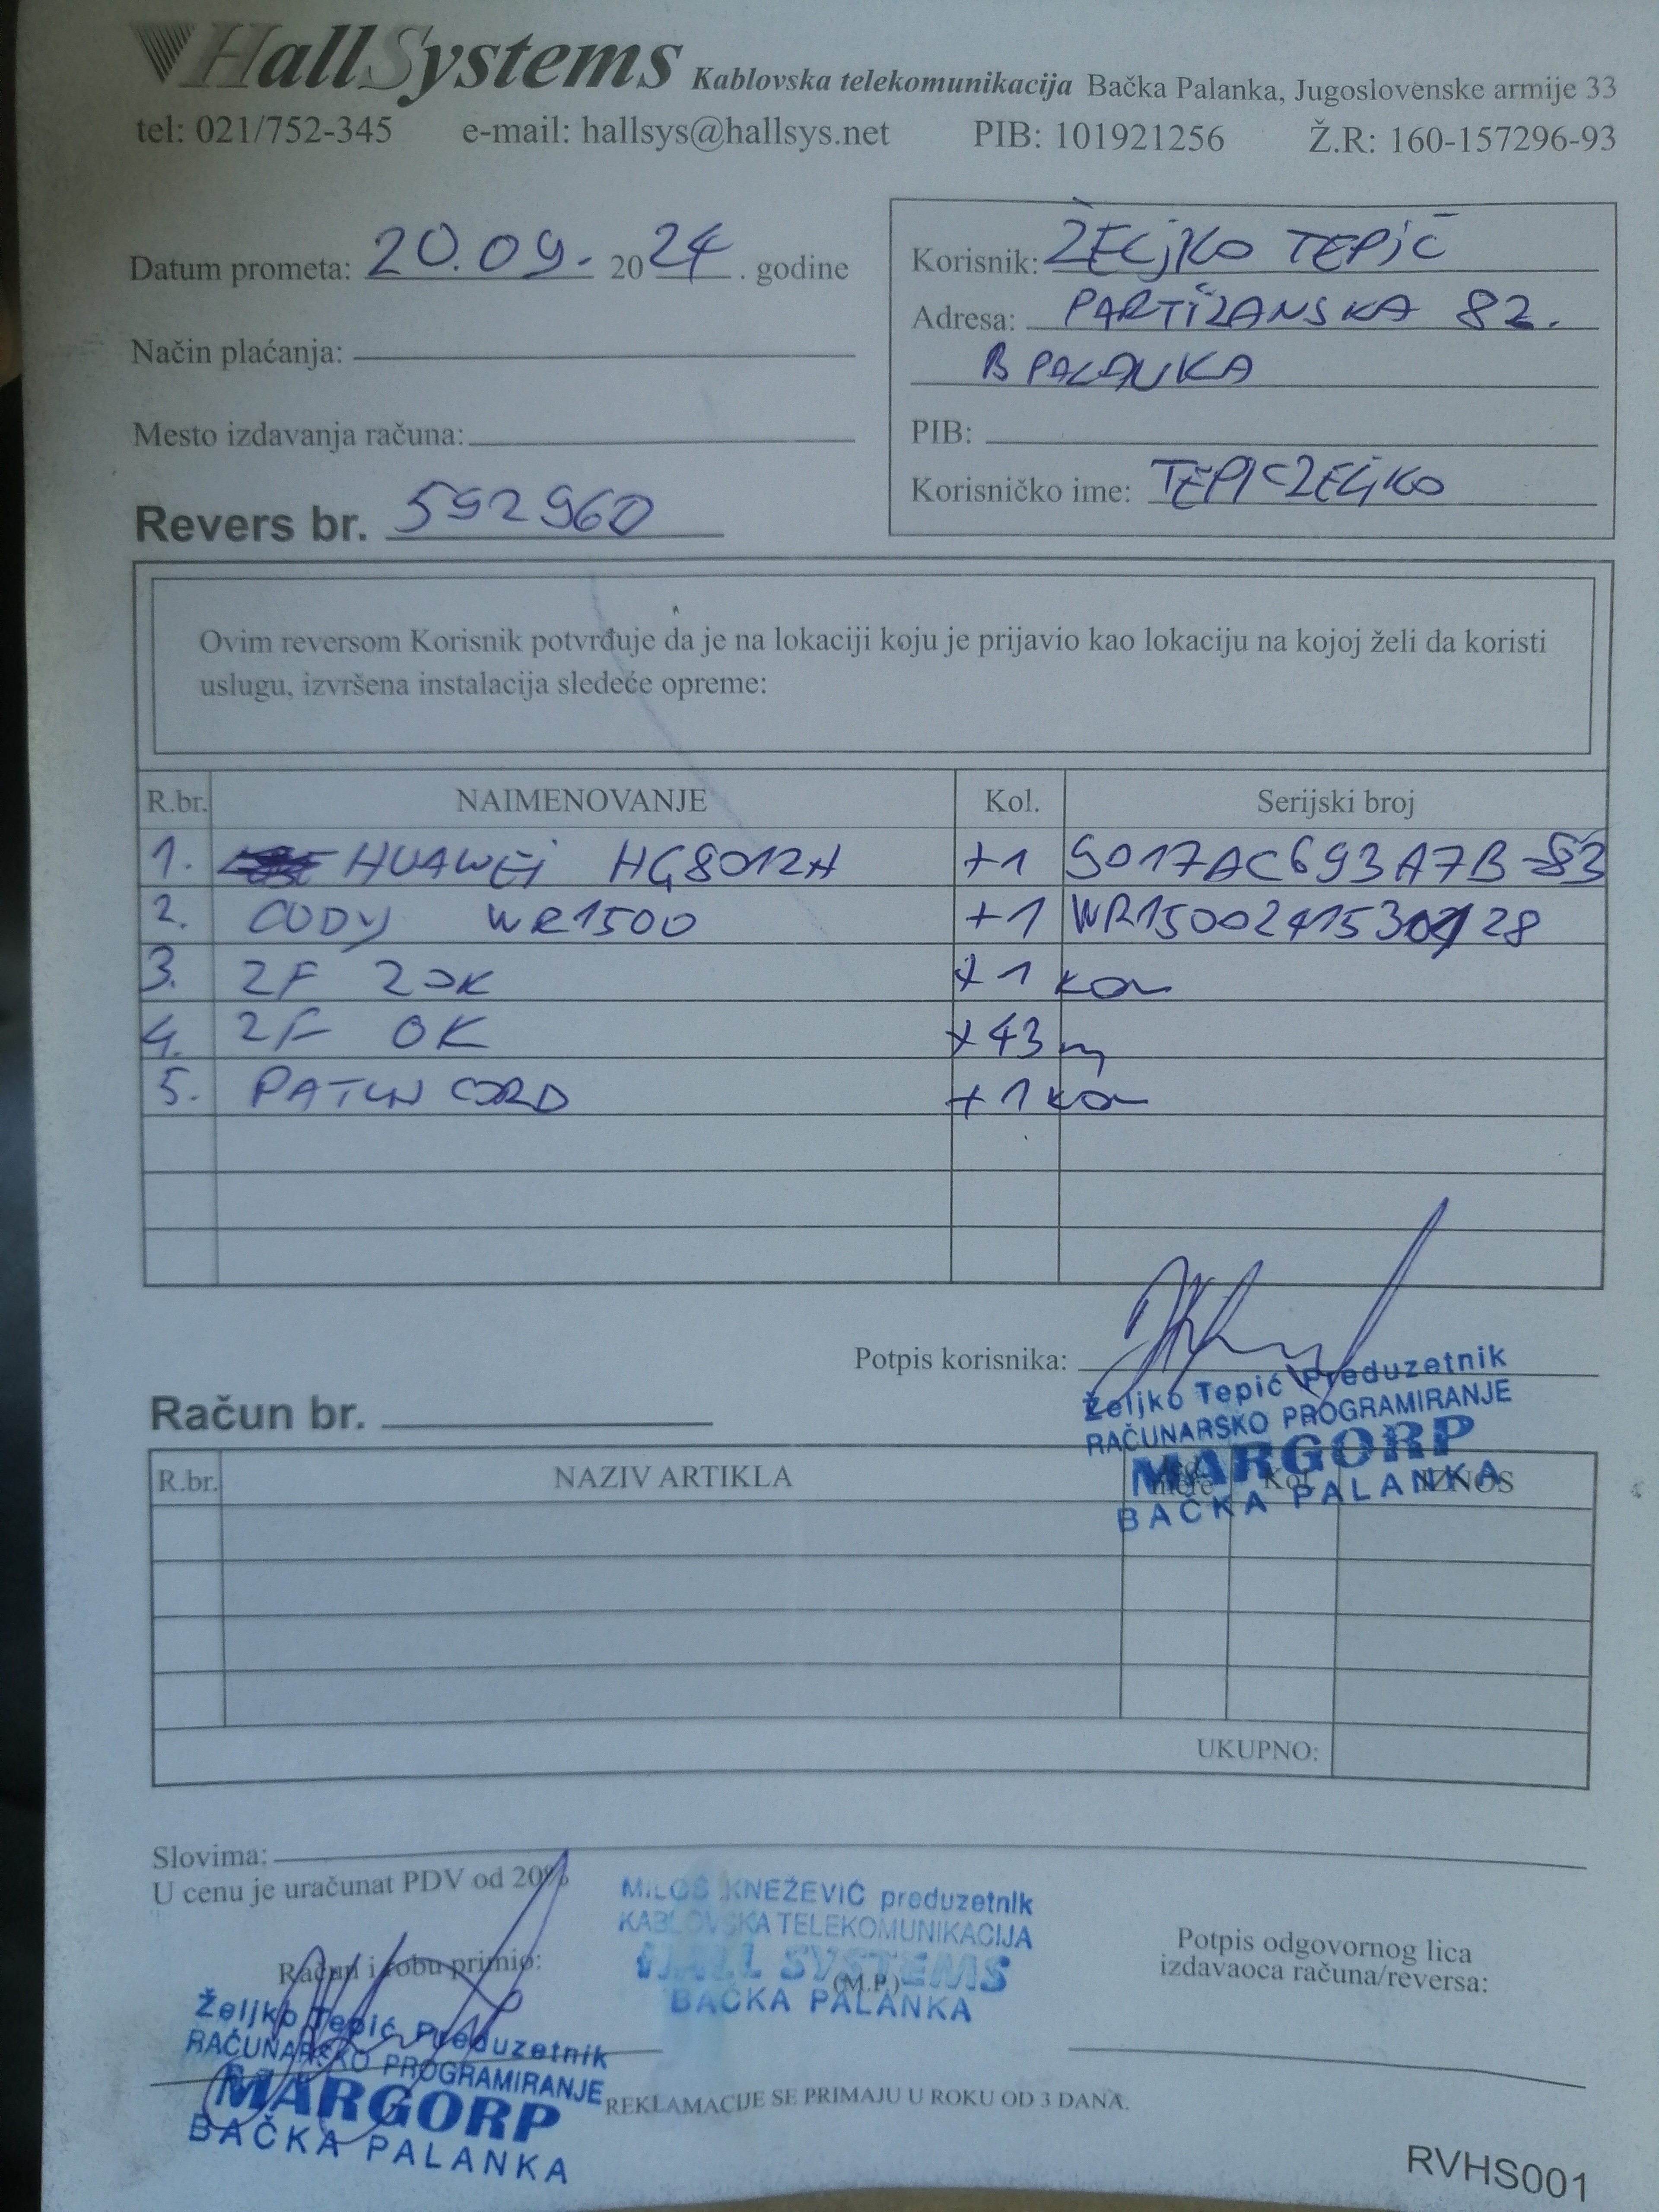 HallSystems Kablovska telekomunikacija Bačka Palanka, Jugoslovenske armije 33
tel: 021/752-345 e-mail: hallsys@hallsys.net PIB: 101921256 Ž.R: 160-157296-93
Datum prometa: 20.09. 2024. godine
Način plaćanja:
Mesto izdavanja računa:
Revers br. 592960
Korisnik: ŽELJKO TEPIĆ
Adresa: PARTIZANSKA 82.
B PALANKA
PIB:
Korisničko ime: TEPICZELJKO
Ovim reversom Korisnik potvrđuje da je na lokaciji koju je prijavio kao lokaciju na kojoj želi da koristi
uslugu, izvršena instalacija sledeće opreme:
R.br. NAIMENOVANJE Kol. Serijski broj
1. HUAWEI HG8012H +1
2. CUDY WR1500 +1
3. 2F ZOK +1 kom
4. 2F OK +43 m
5. PATCH CORD +1 kom
Potpis korisnika:
Željko Tepić Preduzetnik
RAČUNARSKO PROGRAMIRANJE
MARGORP
BAČKA PALANKA
Račun br.
R.br. NAZIV ARTIKLA Jed. mere Kol. IZNOS
UKUPNO:
Slovima:
U cenu je uračunat PDV od 20%
Račun i robu primio:
Željko Tepić Preduzetnik
RAČUNARSKO PROGRAMIRANJE
MARGORP
BAČKA PALANKA
MILOŠ KNEŽEVIĆ preduzetnik
KABLOVSKA TELEKOMUNIKACIJA
HALL SYSTEMS
(M.P.)
BAČKA PALANKA
Potpis odgovornog lica
izdavaoca računa/reversa:
REKLAMACIJE SE PRIMAJU U ROKU OD 3 DANA.
RVHS001